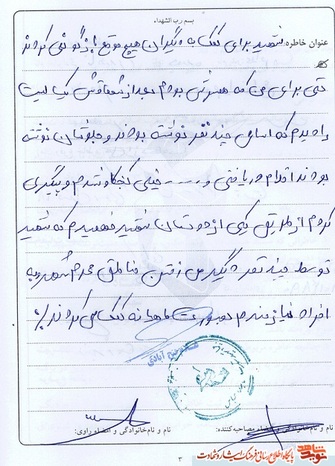 بسم رب الشهداء
عنوان خاطره: شهید برای کمک به دیگران هیچ موقع بازگو نمی کردند
حتی برای من که همسرش بودم بعد از شهادتش یک لیست
را دیدم که اسامی چند نفر نوشته بودند و جلوشان نوشته
بودند اقدام دریافتی و ..... خیلی کنجکاو شدم و پیگیری
کردم از طریق یکی از دوستان شهید فهمیدم که شهید
توسط چند نفر دیگر می رفتن مناطق محروم شهر و به
افراد نیازمند بصورت ماهیانه کمک می کردند.
نام و نام خانوادگی و امضاء مصاحبه کننده:
نام و نام خانوادگی و امضاء راوی:
۳
نوید شاهد
پایگاه اطلاع رسانی فرهنگ ایثار و شهادت